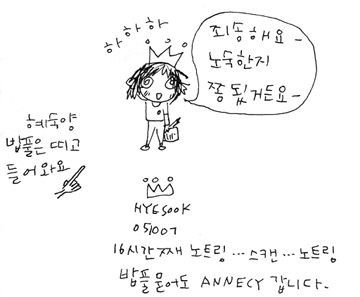 하하하
죄송해요-
노숙한지
쫌 됬거든요-
혜숙양
밥풀은 띠고
들어와요
HYESOOK
051007
16시간째 노트링 … 스캔 … 노트링
밥풀 묻어도 ANNECY 갑니다-